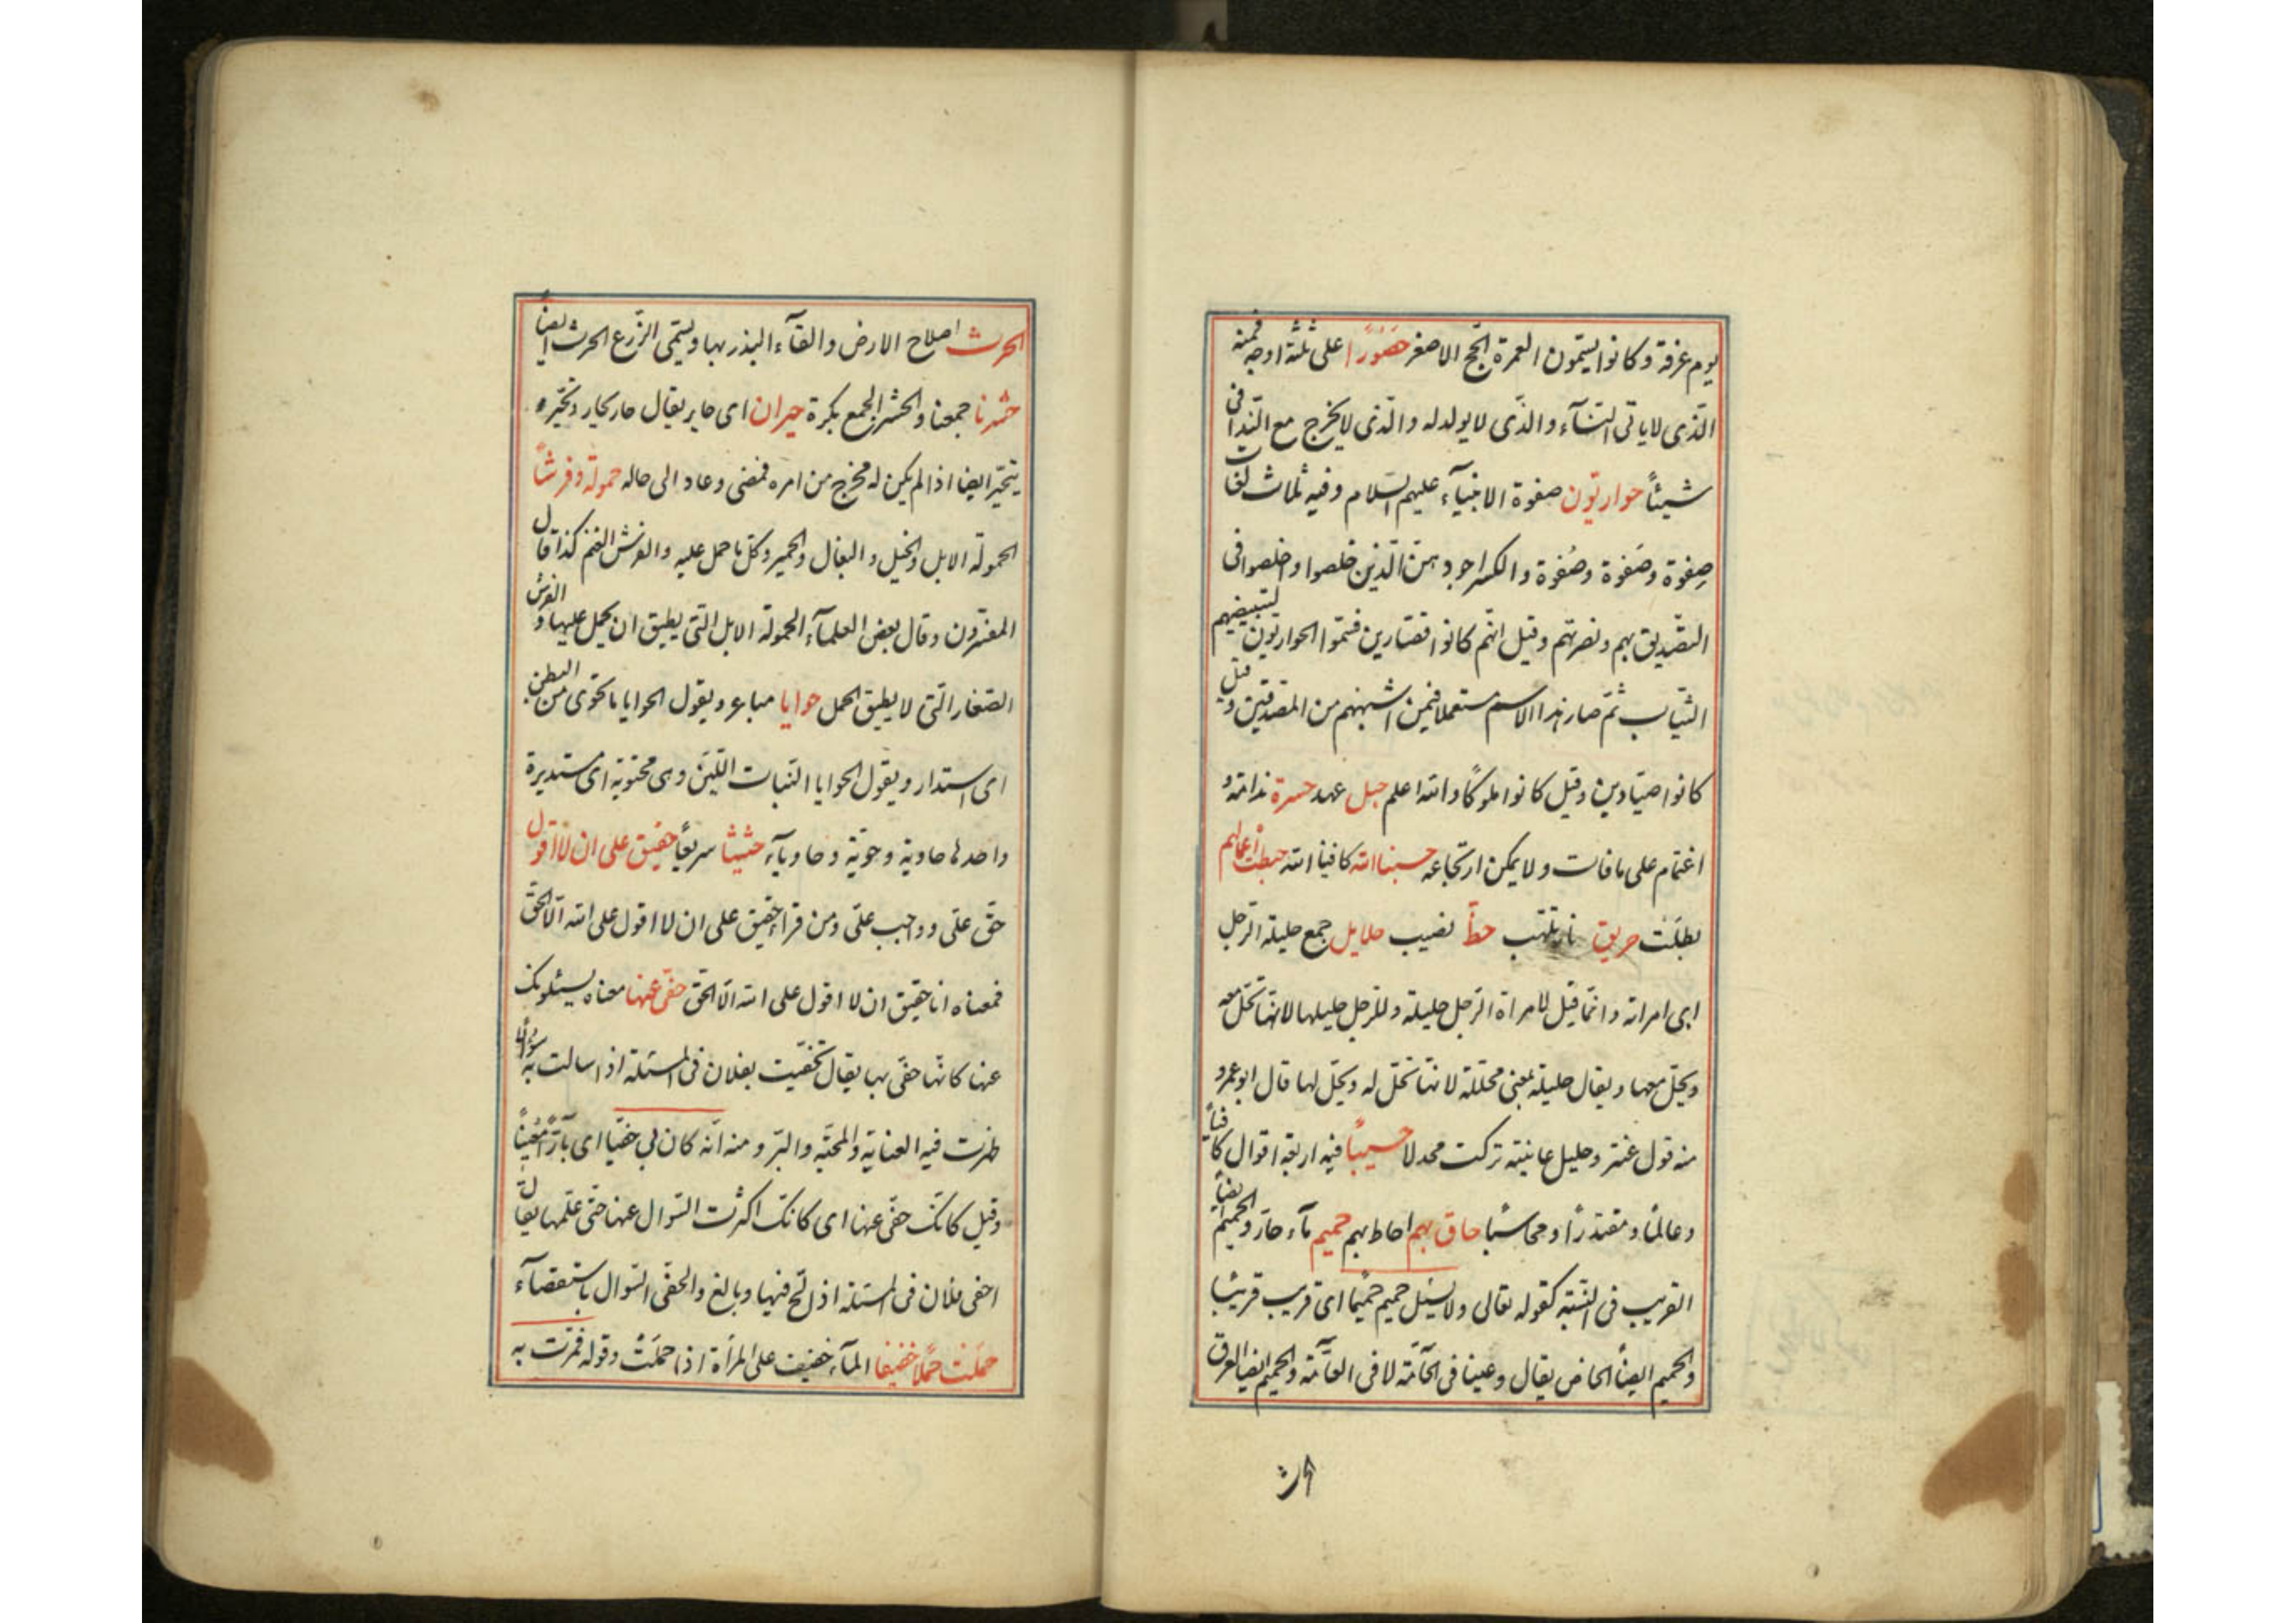 يوم عرفة وكانوا يسمّون العمرة الحج الاصغر حَصُورًا على ثلثة اوجه فمنه
الّذى لا ياتى النسآء والذّى لا يولد له والّذى لا يخرج مع النّدا فى
شيئاً حواريّون صفوة الانبيآء عليهم السّلام وفيه ثلاث لغات
صِفوة وصَفوة وصُفوة والكسر اجود هنّ الّذين خلصوا واخلصوا فى
التصّديق بهم ونصرتهم وقيل انّهم كانوا قصّارين فسمّوا الحواريّون لتبييضهم
الثيّاب ثمّ صار هذا الاسم مستعملا فيمن اشبههم من المصّدقين وقيل
كانوا صيّادين وقيل كانوا ملوكًا والله اعلم حبل عهد حسرة ندامة و
اغتمام على ما فات ولا يمكن ارتجاعه حسبنا الله كافينا الله حبطت أعمالهم
بطلَت حريق نار تلتهب حظّ نصيب حلايل جمع حليلة الرّجل
اى امراته وانّما قيل لامراة الرّجل حليلة وللرّجل حليلها لانّها تحلّ معه
ويحلّ معها ويقال حليلة بمعنى محلّلة لانّها تحلّ له ويحلّ لها قال ابو عمرو
منه قول عنتر وحليل غانية تركت مجدلا حسيبًا فيه اربعة اقوال كافياً
وعالمًا ومقتدرًا ومحاسبًا حاق بهم احاط بهم حميم مآء حارّ والحميم ايضاً
القريب فى النسّبة كقوله تعالى ولا يسئل حميم حميمًا اى قريب قريبًا
والحميم ايضاً الخاص يقال وعينا فى الخآمّة لا فى العآمّة والحميم ايضا العرق
الحرث
الحرث اصلاح الارض والقآء البذر بها ويسمّى الزّرع الحرث ايضاً
حشرنا جمعنا والحشر الجمع بكرة حيران اى حاير يقال حار يحار وتحيّر
يتحيّر ايضا اذا لم يكن له مخرج من امره فمضى وعاد الى حاله حمولة وفرشاً
الحمولة الابل والخيل والبغال والحمير وكلّ ما حمل عليه والفرش الغنم كذا قال
المفسّرون وقال بعض العلمآء الحمولة الابل التى يطيق ان يحمل عليها والفرش
الصّغار الّتى لا يطيق الحمل حوايا مباعر ويقول الحوايا ما تحوّى من البطن
اى استدار ويقول الحوايا النبات اللّبن وهى محتوية اى مستديرة
واحدها حاوية وحويّة وحاويآء حثيثا سريعًا حقيق على ان لا اقول
حقّ علىّ وواجب علىّ ومن قرا حقيق على ان لا اقول على الله الّا الحقّ
فمعناه انا حقيق ان لا اقول على الله الّا الحقّ حفىّ عنها معناه يسئلونك
عنها كانّها حفىّ بها يقال تحفّيت بفلان فى المسئلة اذا سالت به سؤالًا
ظهرت فيه العناية والمحبّة والبرّ ومنه انّه كان بى حفيّا اى بآرًّا مُعينًا
وقيل كانّك حفى عنها اى كانّك اكثرت السّوال عنها حتى علّمها يقال
احفى فلان فى المسئلة اذا لحّ فيها وبالغ والحفى السّوال باستقصآء
حمَلت حمْلا خفيفا المآء خفيف على المرأة اذا حملَت وقوله فمرّت به